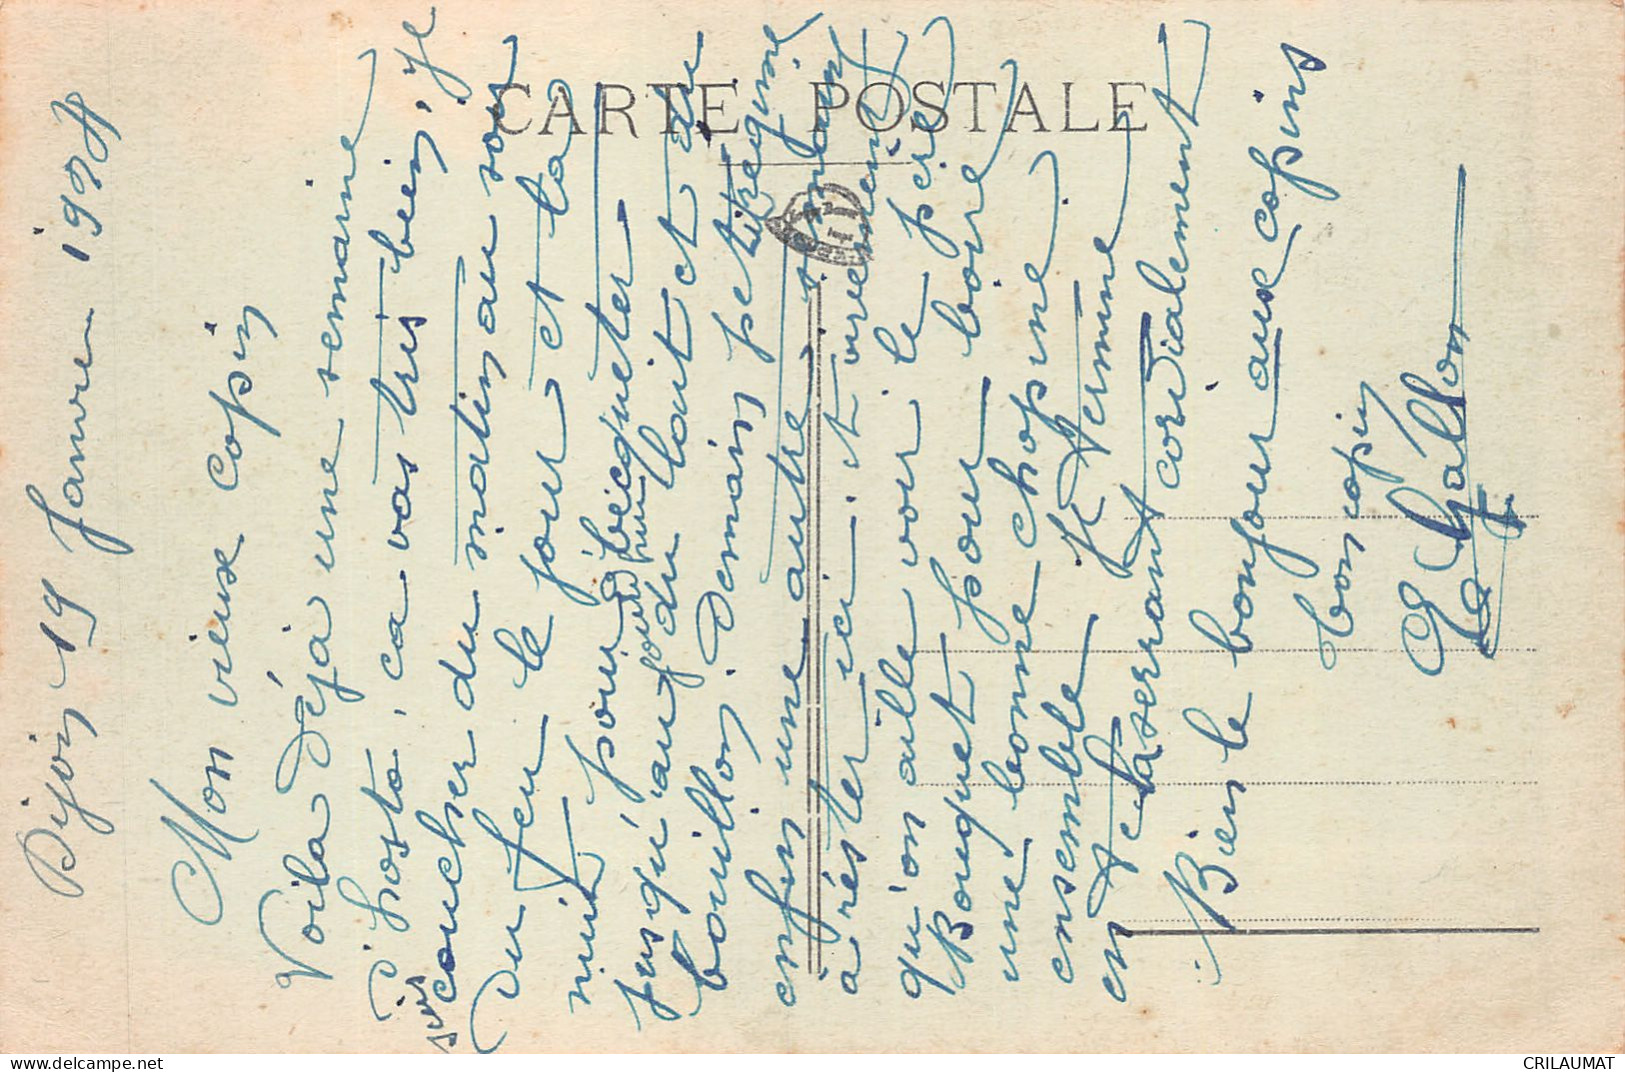 CARTE POSTALE
Dijon 19 Janvier 19
Mon vieux copin
Voila Déjà une semaine
d'hosto, ca vas très bien, je
suis coucher du matin au soir
Du feu le jour et la
nuit pour becqueter
jusqu'au jourd'hui du lait et du
bouillon. Demain petit regime
enfin une autre
à réster ici. et vivement
qu'on aille voir le père
Bouquet pour boire
une bonne chopine
ensemble. Je termine
en te laserrant cordialement
Bien le bonjour aux copins
ton copin
www.delcampe.net
CRILAUMAT